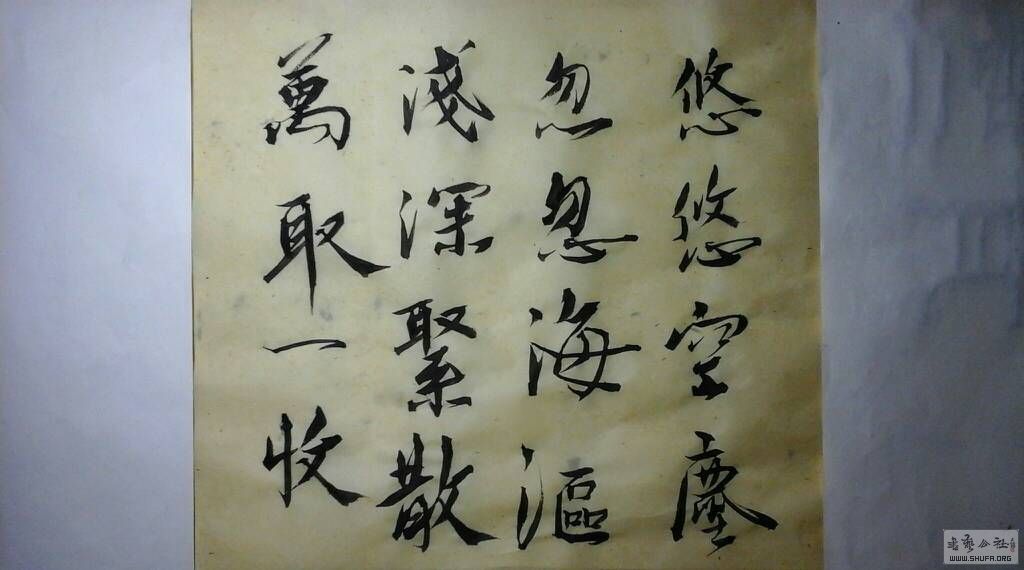 悠悠空塵
忽忽海漚
淺深聚散
萬取一收
WWW.SHUFA.ORG